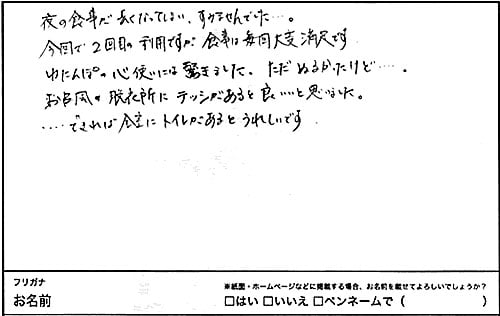 夜の食事が長くなってしまい、すみませんでした…。
今回で2回目の利用ですが、食事は毎回大変満足です
ゆたんぽの心使いには驚きました、ただぬるかったけど…。
お風呂の脱衣所にテッシがあると良いと思いました。
……できれば全室にトイレがあるとうれしいです
フリガナ
お名前
※紙面・ホームページなどに掲載する場合、お名前を載せてよろしいでしょうか？
□はい □いいえ □ペンネームで（　　　　　　）